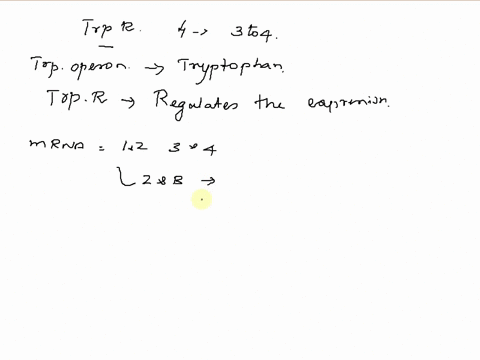 Trp R. 4 -> 3 to 4.
Trp. operon. -> Tryptophan.
Trp. R -> Regulates the expression.
mRNA = 1&2 3 & 4
2 & 3 ->